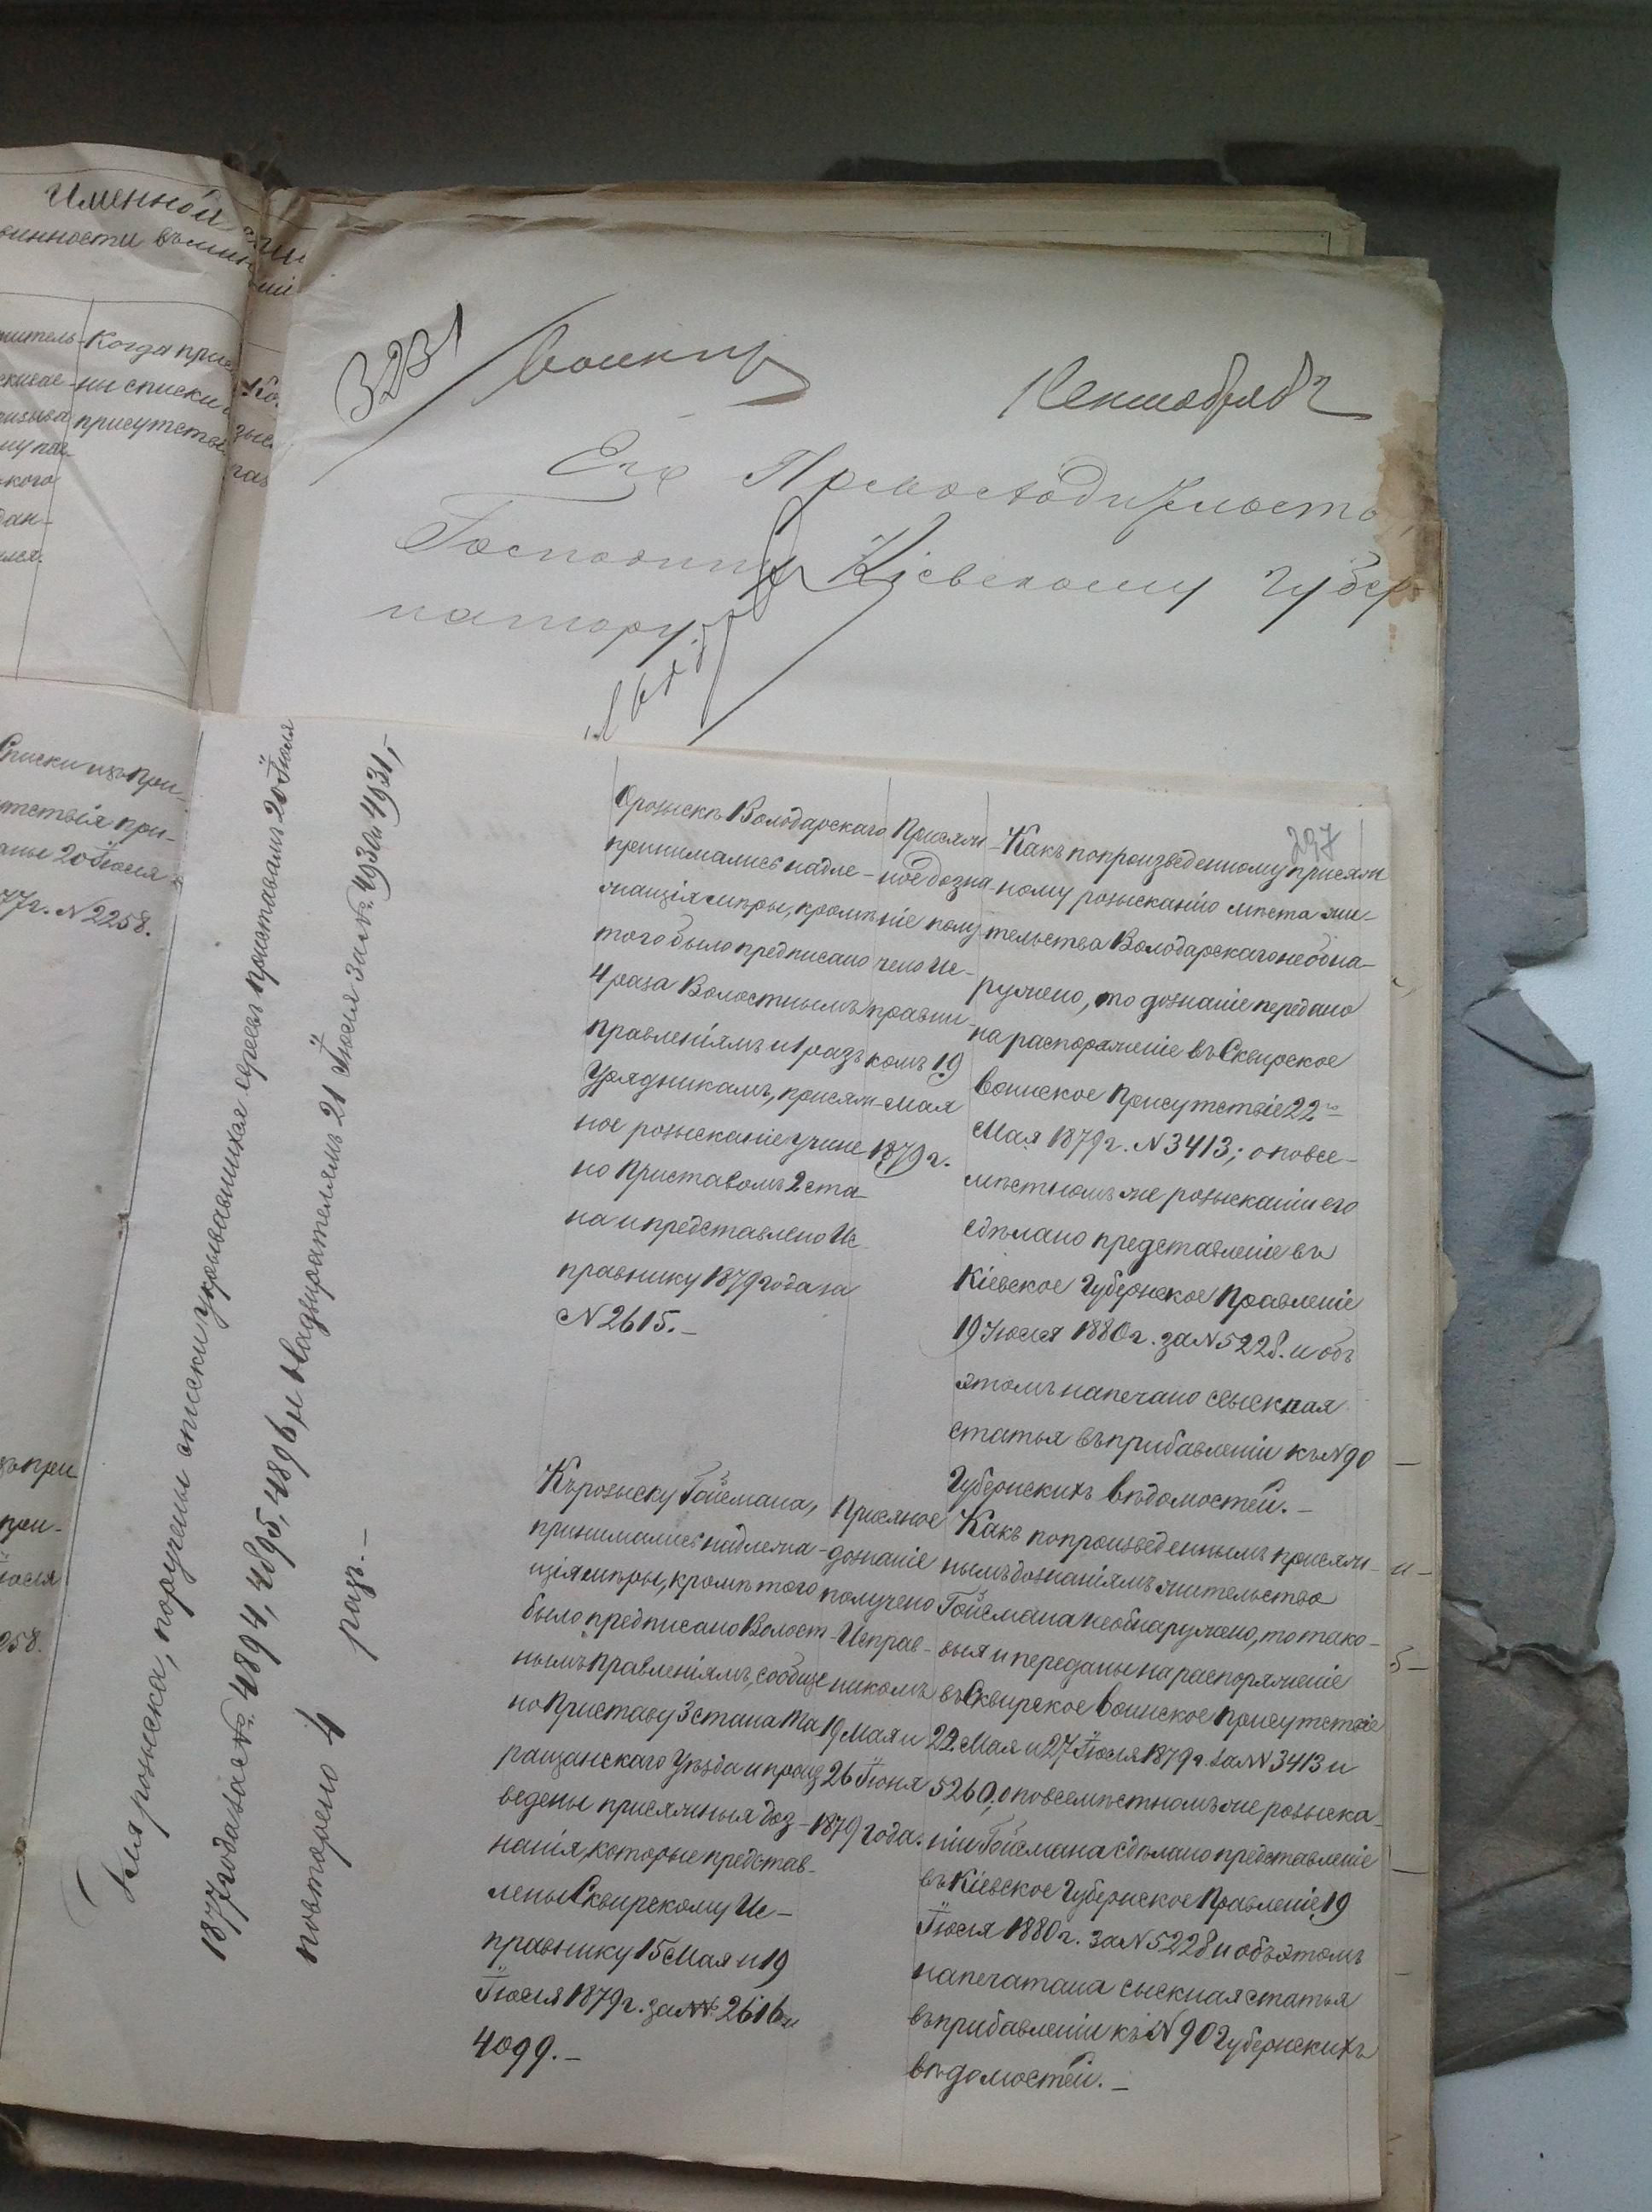 Именной
винности
Когда при
ны списки
присутстві
кого
дан-
лся.
Списки изъ при-
сутствія при-
аны 20 Іюля
77 г. N 2258.
при
258.
3231
Его Превосходительству
Господину Кіевскому Губер
натору.
Для розыска, поручены списки укрывавшихся евреевъ приставамъ 20 Іюля
1877 года за №№ 4894, 4895, 4896, и Надзирателямъ 21 Іюля за №№ 4930 и 4931,
повторено 4 раз. —
297
О розыскѣ Володарскаго
принимались надле-
жащія мѣры, кромѣ
того было предписано
4 раза Волостнымъ
правленіямъ и 1 разъ
Урядникамъ, присяж-
ное розысканіе учине
но Приставомъ 2 ста-
на и представлено Ис
правнику 1879 года за
N 2615. —
Присяж-
ное дозна-
ніе полу-
чено Ис-
правни
комъ 19
Мая
1879 г.
Какъ по произведенному присяж
ному розысканію мѣста жи-
тельства Володарскаго не обна-
ружено, то дознаніе передано
на распоряженіе въ Сквирское
Воинское Присутствіе 22го
Мая 1879 г. N 3413; о повсе-
мѣстномъ же розысканіи его
сдѣлано представленіе въ
Кіевское Губернское Правленіе
19 Іюля 1880 г. за N 5228. и объ
этомъ напечано сыскная
статья въ прибавленіи къ N 90
Губернскихъ вѣдомостей. —
Къ розыску Гойсмана,
принимались надлежа-
щія мѣры, кромѣ того
было предписано Волост-
нымъ правленіямъ, сообще
но Приставу 3 стана Та
ращанскаго Уѣзда и произ
ведены присяжныя доз-
нанія, которые представ-
лены Сквирскому Ис-
правнику 15 Мая и 19
Іюля 1879 г. за №№ 2616 и
4099. —
Присяжное
дознаніе
получено
Исправ-
никомъ
19 Мая и
26 Іюня
1879 года.
Какъ по произведеннымъ присяж-
нымъ дознаніямъ жительство
Гойсмана не обнаружено, то тако-
выя и переданы на распоряженіе
въ Сквирское Воинское Присутствіе
22 Мая и 27 Іюля 1879 г. за №№ 3413 и
5260, о повсемѣстномъ же розыска-
ніи Гойсмана сдѣлано представленіе
въ Кіевское Губернское Правленіе 19
Іюля 1880 г. за N 5228 и объ этомъ
напечатана сыскная статья
въ прибавленіи къ N 90 Губернскихъ
вѣдомостей. —